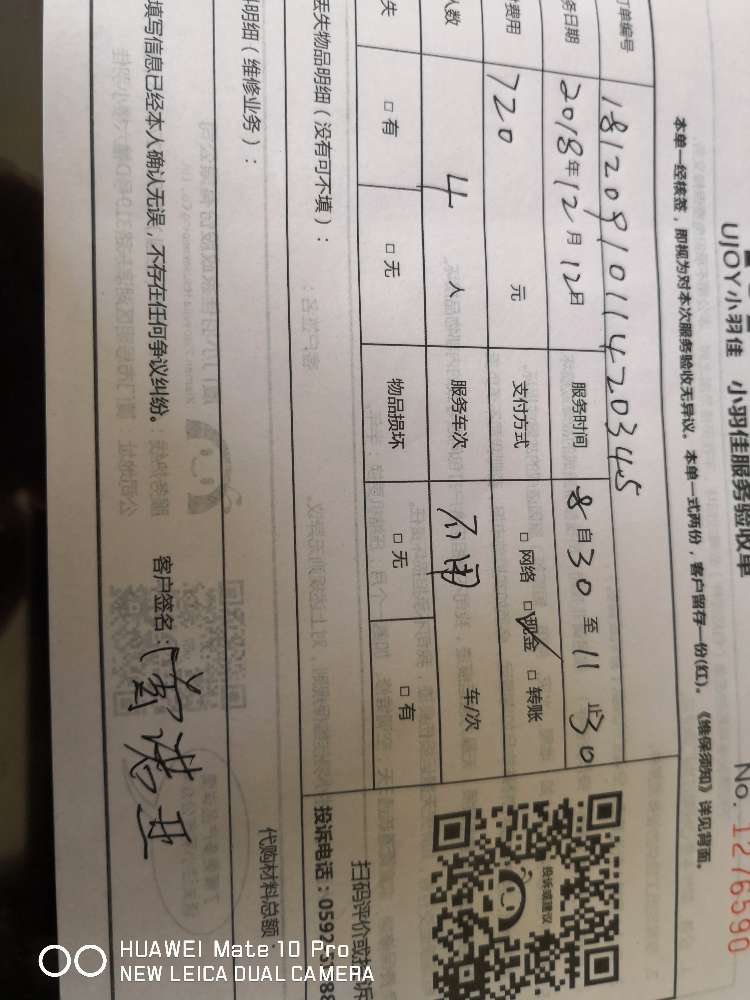 UJOY小羽佳 小羽佳服务验收单
No. 1276590
本单一经核签，即视为对本次服务验收无异议。本单一式两份，客户留存一份(红)。《维保须知》详见背面。
订单编号 181209101142034S
务日期 2018年12月12日 服务时间 8自30至11止30
费用 720 元 支付方式 □网络 □现金 □转账
人数 4 人 服务车次 不用 车/次
失 □有 □无 物品损坏 □无 □有
丢失物品明细（没有可不填）：
投诉或建议
扫码评价或投诉
投诉电话：0592
明细（维修业务）：
代购材料总额：
填写信息已经本人确认无误，不存在任何争议纠纷。 客户签名：
HUAWEI Mate 10 Pro
NEW LEICA DUAL CAMERA